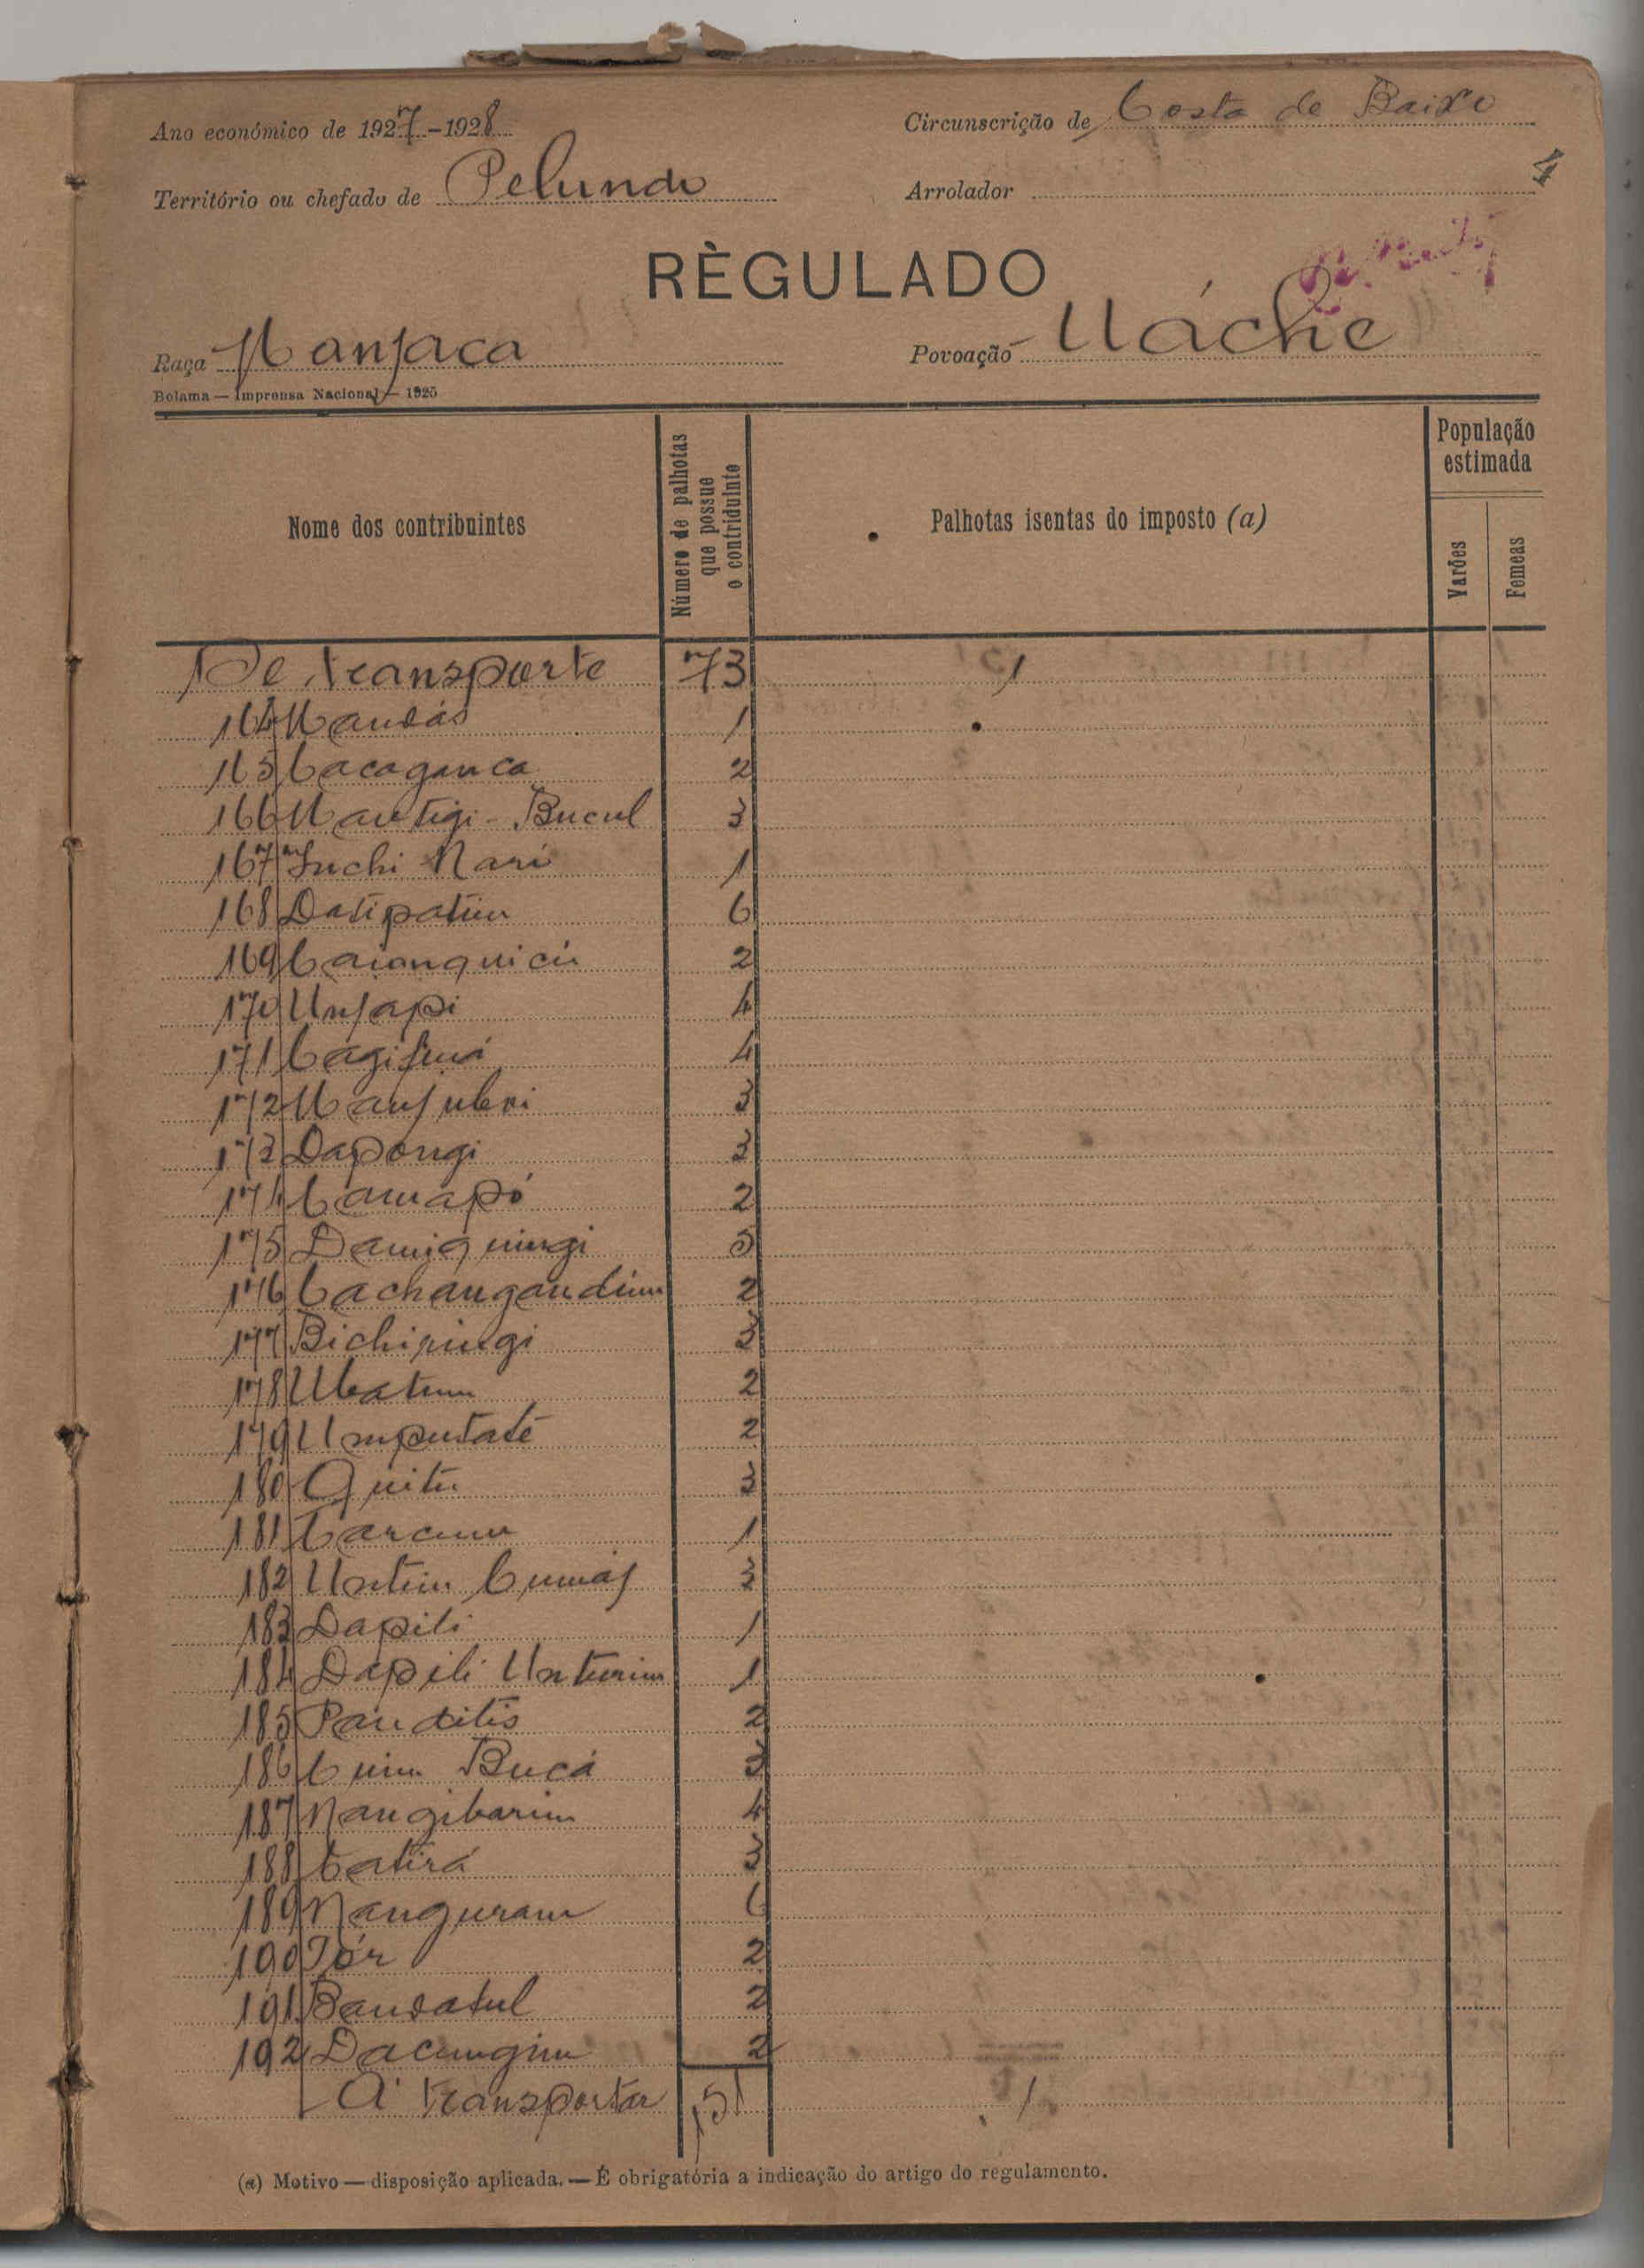 Ano económico de 1927-1928
Circunscrição de Costa de Baixo
4
Território ou chefado de Pelundo
Arrolador
RÈGULADO
Raça Manjaca
Povoação Uáche
Bolama — Imprensa Nacional — 1925
Nome dos contribuintes
Número de palhotas que possue o contriduinte
Palhotas isentas do imposto (a)
População estimada
Varões
Femeas
De transporte 73 1
164 Mandás 1
165 Cacaganca 2
166 Mantigi - Bucul 3
167 Juchi Nari 1
168 Datipatim 6
169 Caianquicu 2
170 Unjapi 4
171 4
172 Manjuberi 3
173 Dapongi 3
174 Camapó 2
175 Damiquingi 5
176 Cachangandim 2
177 3
178 Ubatum 2
179 Umputaté 2
180 Quitu 3
181 Carcum 1
182 Untim 3
183 Dapili 1
184 Dapili Unturim 1
185 Panditis 2
186 Cuim Bucá 3
187 Nangibarim 4
188 Catirá 3
189 Nanguram 6
190 Tór 2
191 Bandatul 2
192 Dacungim 2
A transportar 151 1
(a) Motivo — disposição aplicada. — É obrigatória a indicação do artigo do regulamento.